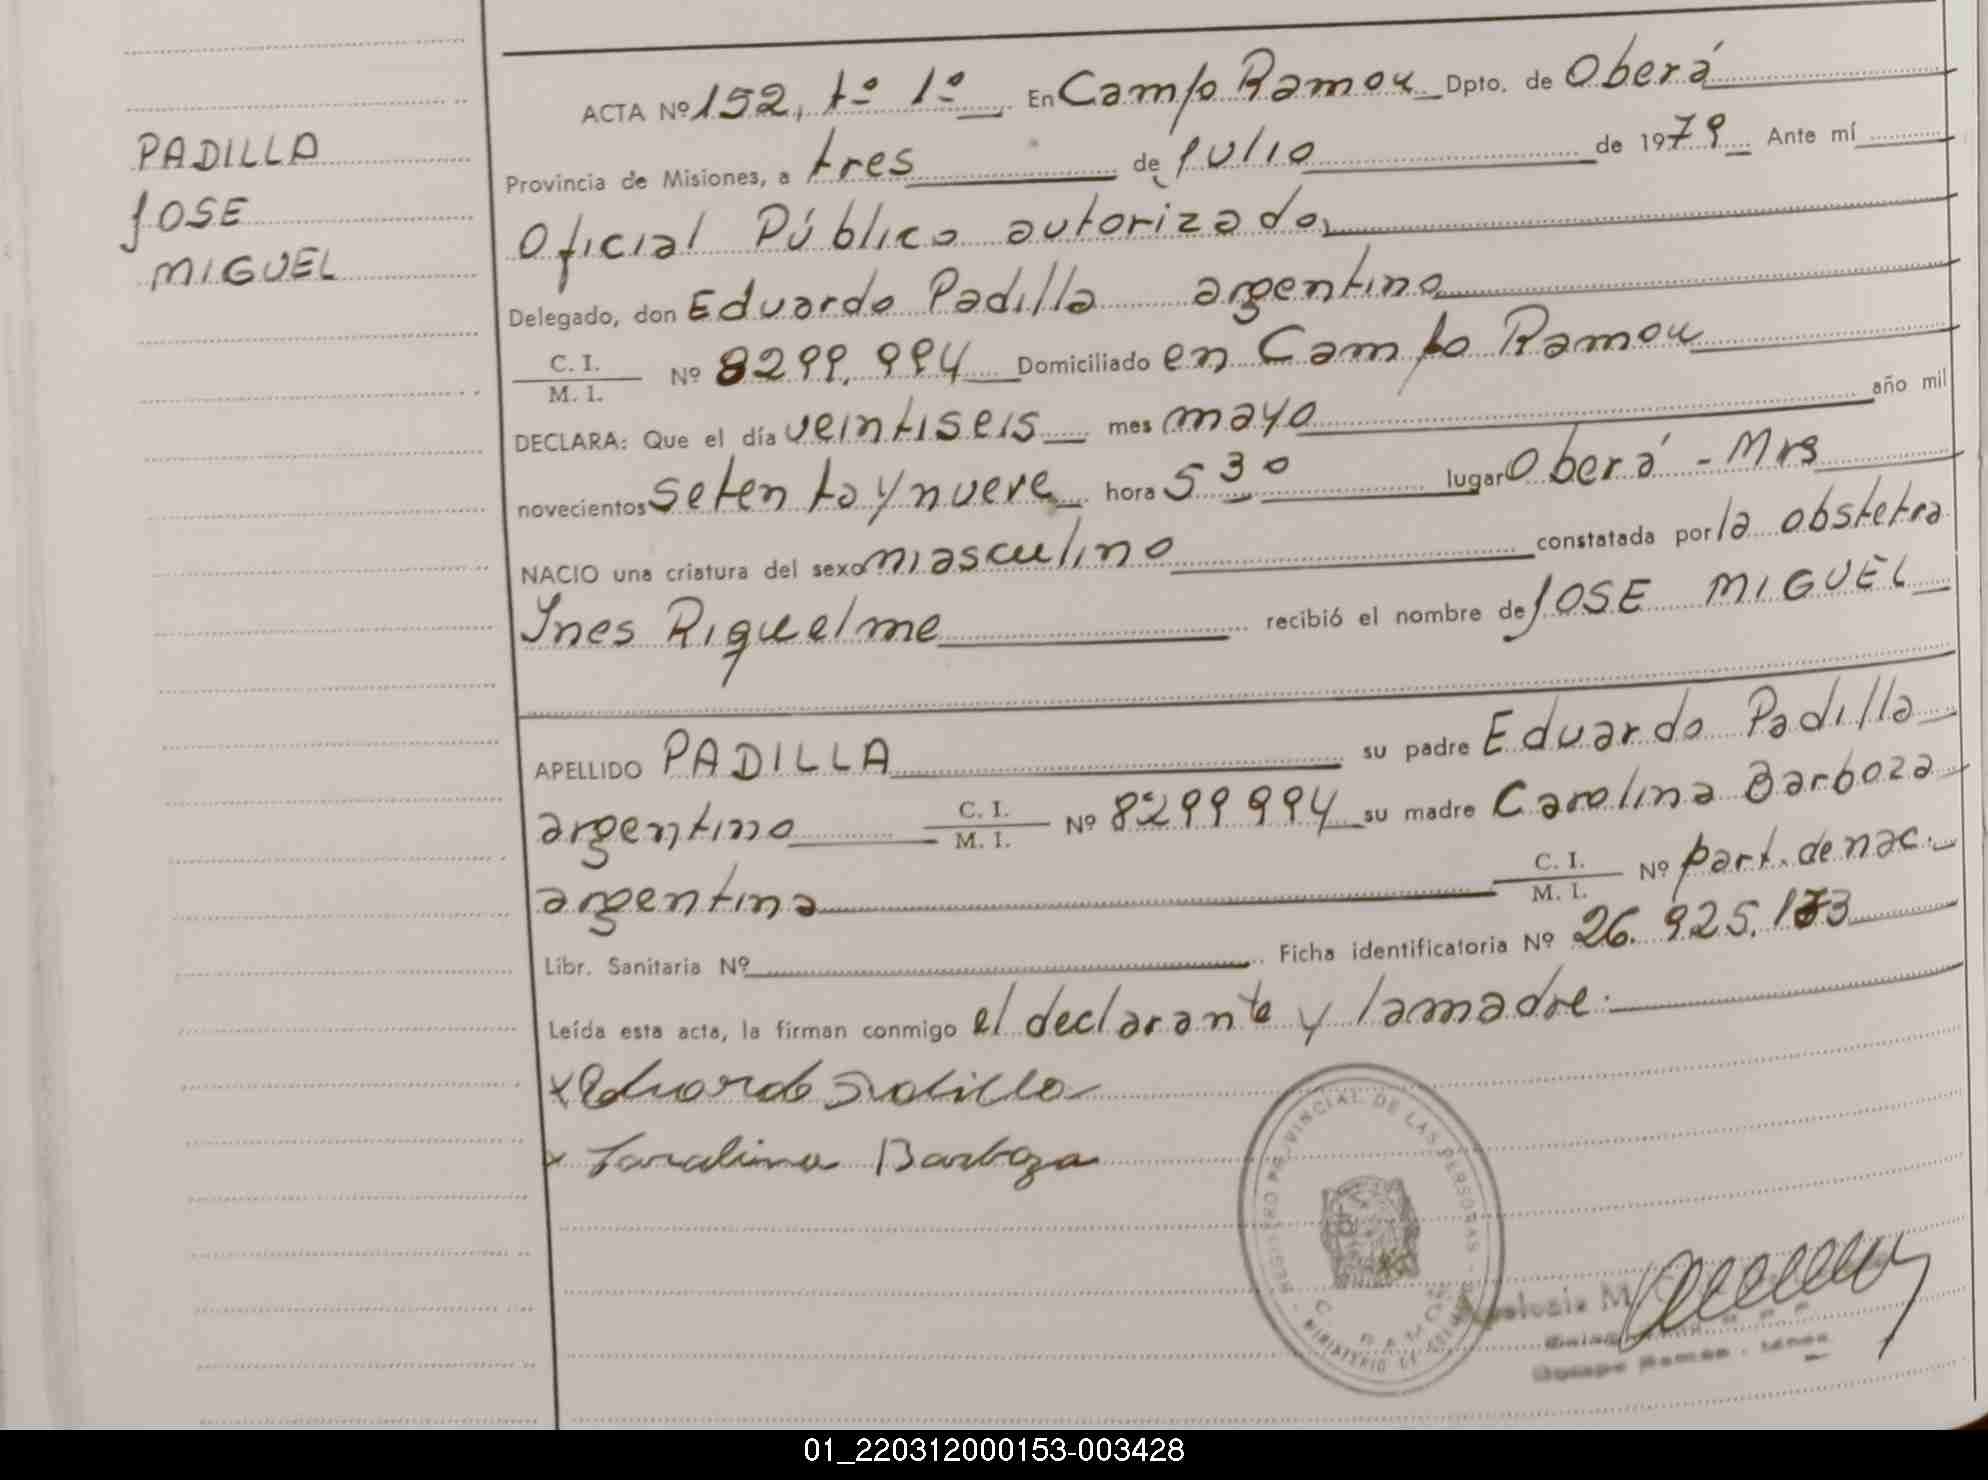 PADILLA
JOSE
MIGUEL
ACTA Nº 152, tº 1º En Campo Ramon Dpto. de Oberá
Provincia de Misiones, a tres de julio de 1979 Ante mí
Oficial Público autorizado,
Delegado, don Eduardo Padilla argentino
C. I.
M. I.
Nº 8299.994 Domiciliado en Campo Ramon
DECLARA: Que el día veintiseis mes mayo año mil
novecientos setenta y nueve hora 5 30 lugar Oberá - Mns
NACIO una criatura del sexo masculino constatada por la obstetra
Ines Riquelme recibió el nombre de JOSE MIGUEL
APELLIDO PADILLA su padre Eduardo Padilla
argentino C. I.
M. I.
Nº 8299994 su madre Carolina Barboza
argentina C. I.
M. I.
Nº part. de nac.
Libr. Sanitaria Nº Ficha identificatoria Nº 26.925.173
Leída esta acta, la firman conmigo el declarante y la madre.
x Eduardo Padilla
x Carolina Barboza
REGISTRO PROVINCIAL DE LAS PERSONAS
MINISTERIO DE GOBIERNO
01_220312000153-003428